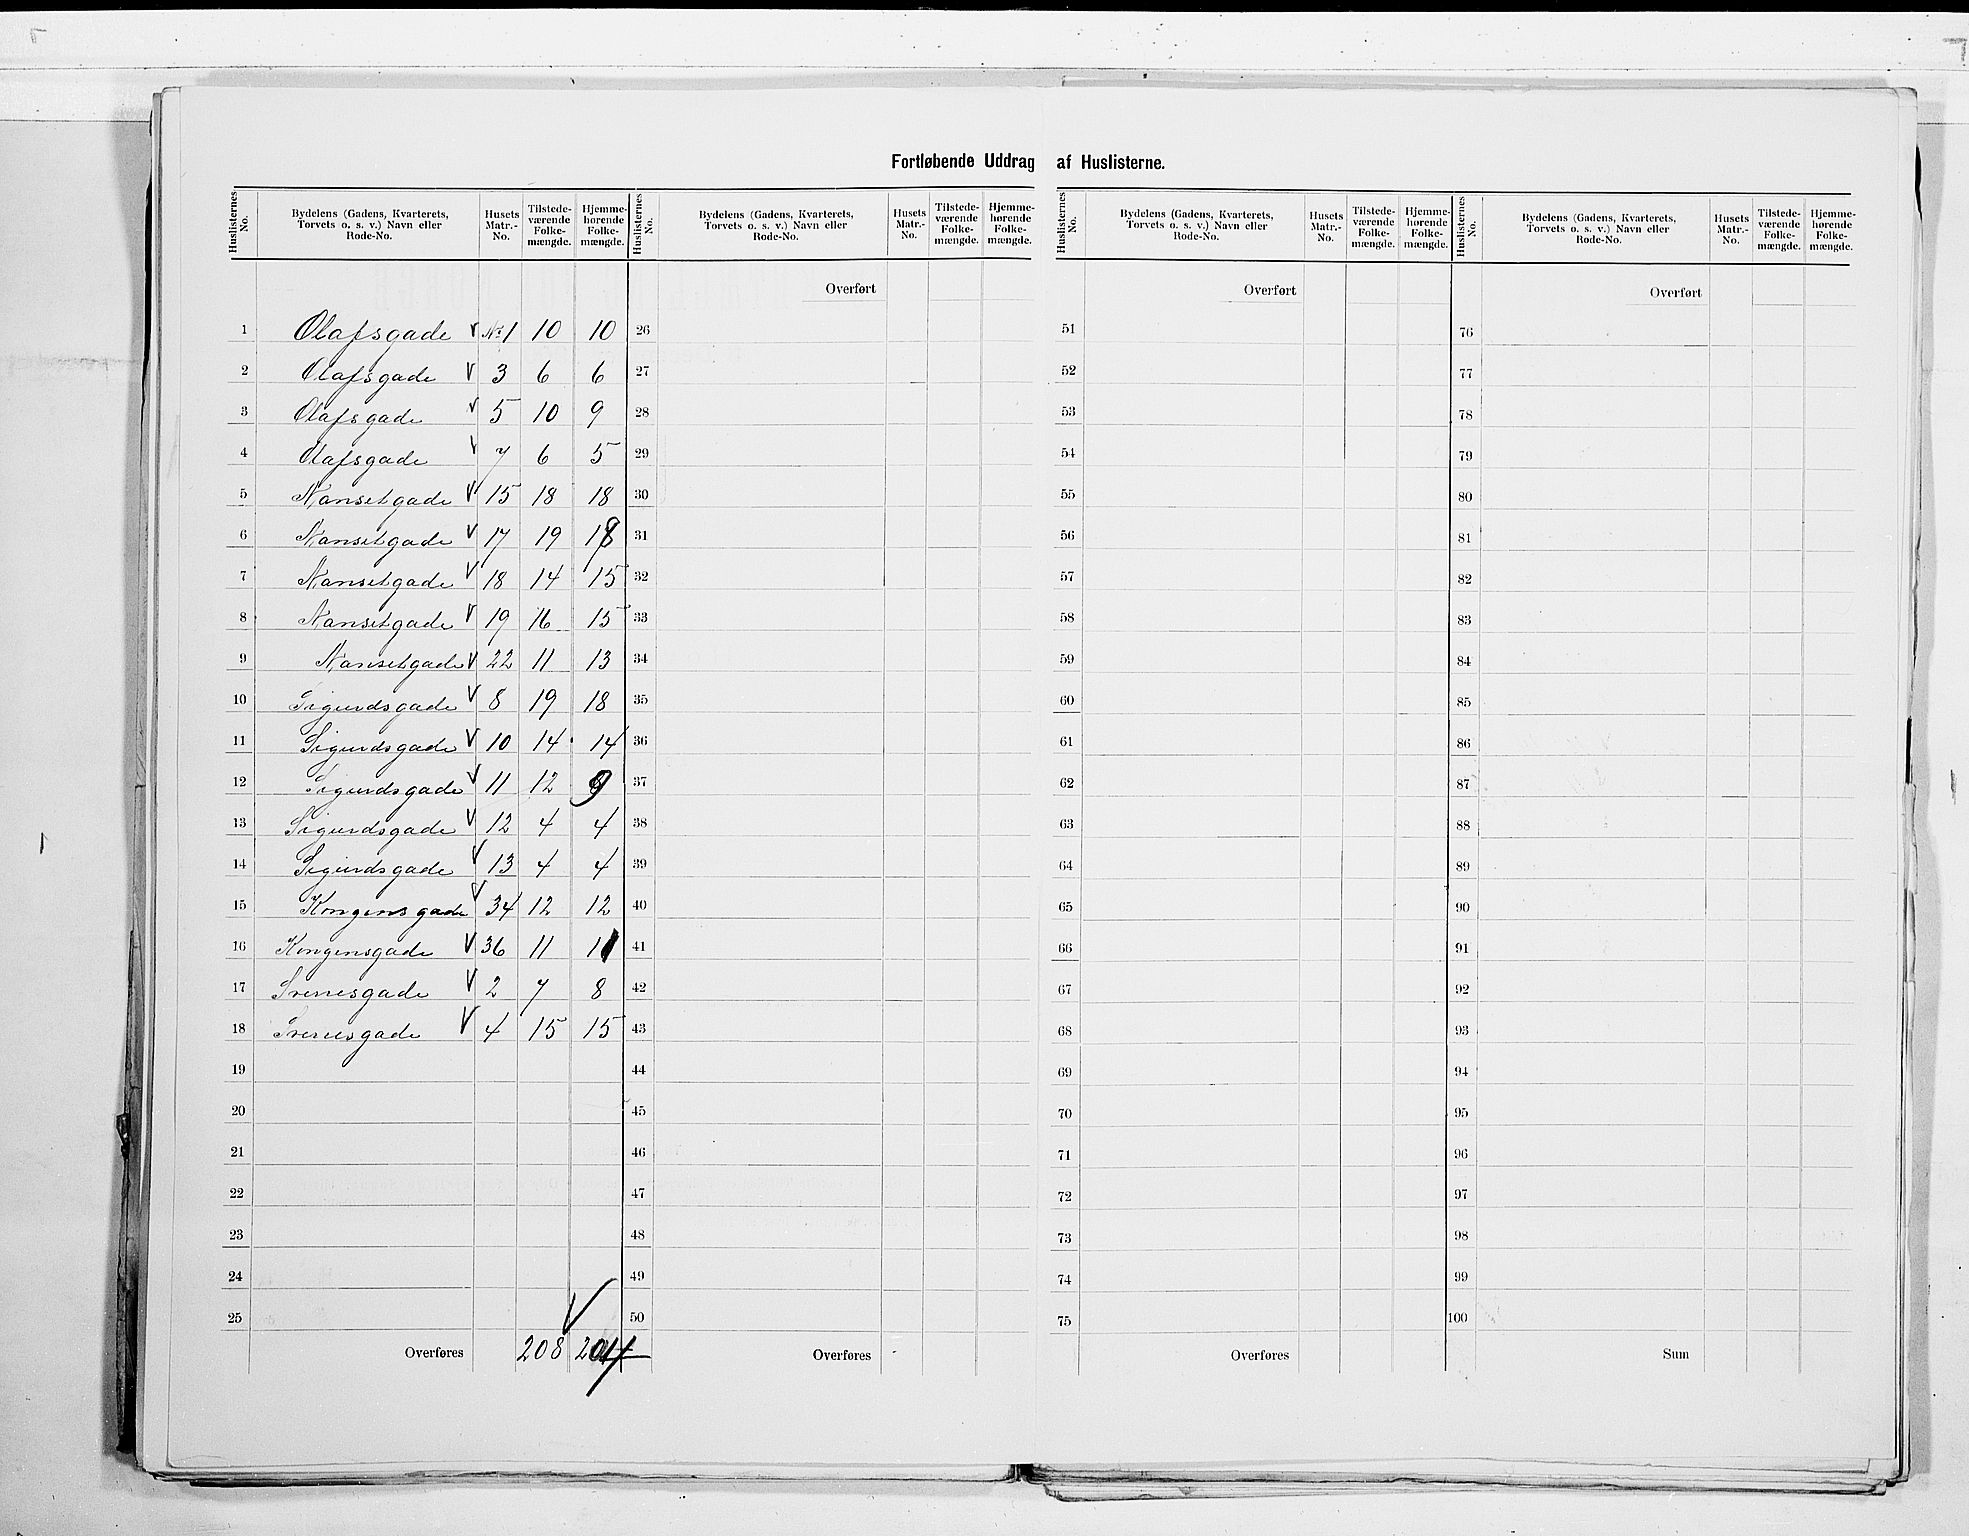 Fortløbende Uddrag af Huslisterne.
Huslisternes No. | Bydelens (Gadens, Kvarterets, Torvets o. s. v.) Navn eller Rode-No. | Husets Matr.-No. | Tilstede-værende Folke-mængde. | Hjemme-hørende Folke-mængde.
Huslisternes No. | Bydelens (Gadens, Kvarterets, Torvets o. s. v.) Navn eller Rode-No. | Husets Matr.-No. | Tilstede-værende Folke-mængde. | Hjemme-hørende Folke-mængde.
Huslisternes No. | Bydelens (Gadens, Kvarterets, Torvets o. s. v.) Navn eller Rode-No. | Husets Matr.-No. | Tilstede-værende Folke-mængde. | Hjemme-hørende Folke-mængde.
Huslisternes No. | Bydelens (Gadens, Kvarterets, Torvets o. s. v.) Navn eller Rode-No. | Husets Matr.-No. | Tilstede-værende Folke-mængde. | Hjemme-hørende Folke-mængde.
Overført Overført Overført
1 Olafsgade V No 1 10 10 26 51 76
2 Olafsgade V 3 6 6 27 52 77
3 Olafsgade V 5 10 9 28 53 78
4 Olafsgade V 7 6 5 29 54 79
5 Nansetgade V 15 18 18 30 55 80
6 Nansetgade V 17 19 18 31 56 81
7 Nansetgade V 18 14 15 32 57 82
8 Nansetgade V 19 16 15 33 58 83
9 Nansetgade V 22 11 13 34 59 84
10 Sigurdsgade V 8 19 18 35 60 85
11 Sigurdsgade V 10 14 14 36 61 86
12 Sigurdsgade V 11 12 9 37 62 87
13 Sigurdsgade V 12 4 4 38 63 88
14 Sigurdsgade V 13 4 4 39 64 89
15 Kongensgade V 34 12 12 40 65 90
16 Kongensgade V 36 11 11 41 66 91
17 Sverresgade V 2 7 8 42 67 92
18 Sverresgade V 4 15 15 43 68 93
19 44 69 94
20 45 70 95
21 46 71 96
22 47 72 97
23 48 73 98
24 49 74 99
25 V 50 75 100
Overføres 208 204 Overføres Overføres Sum